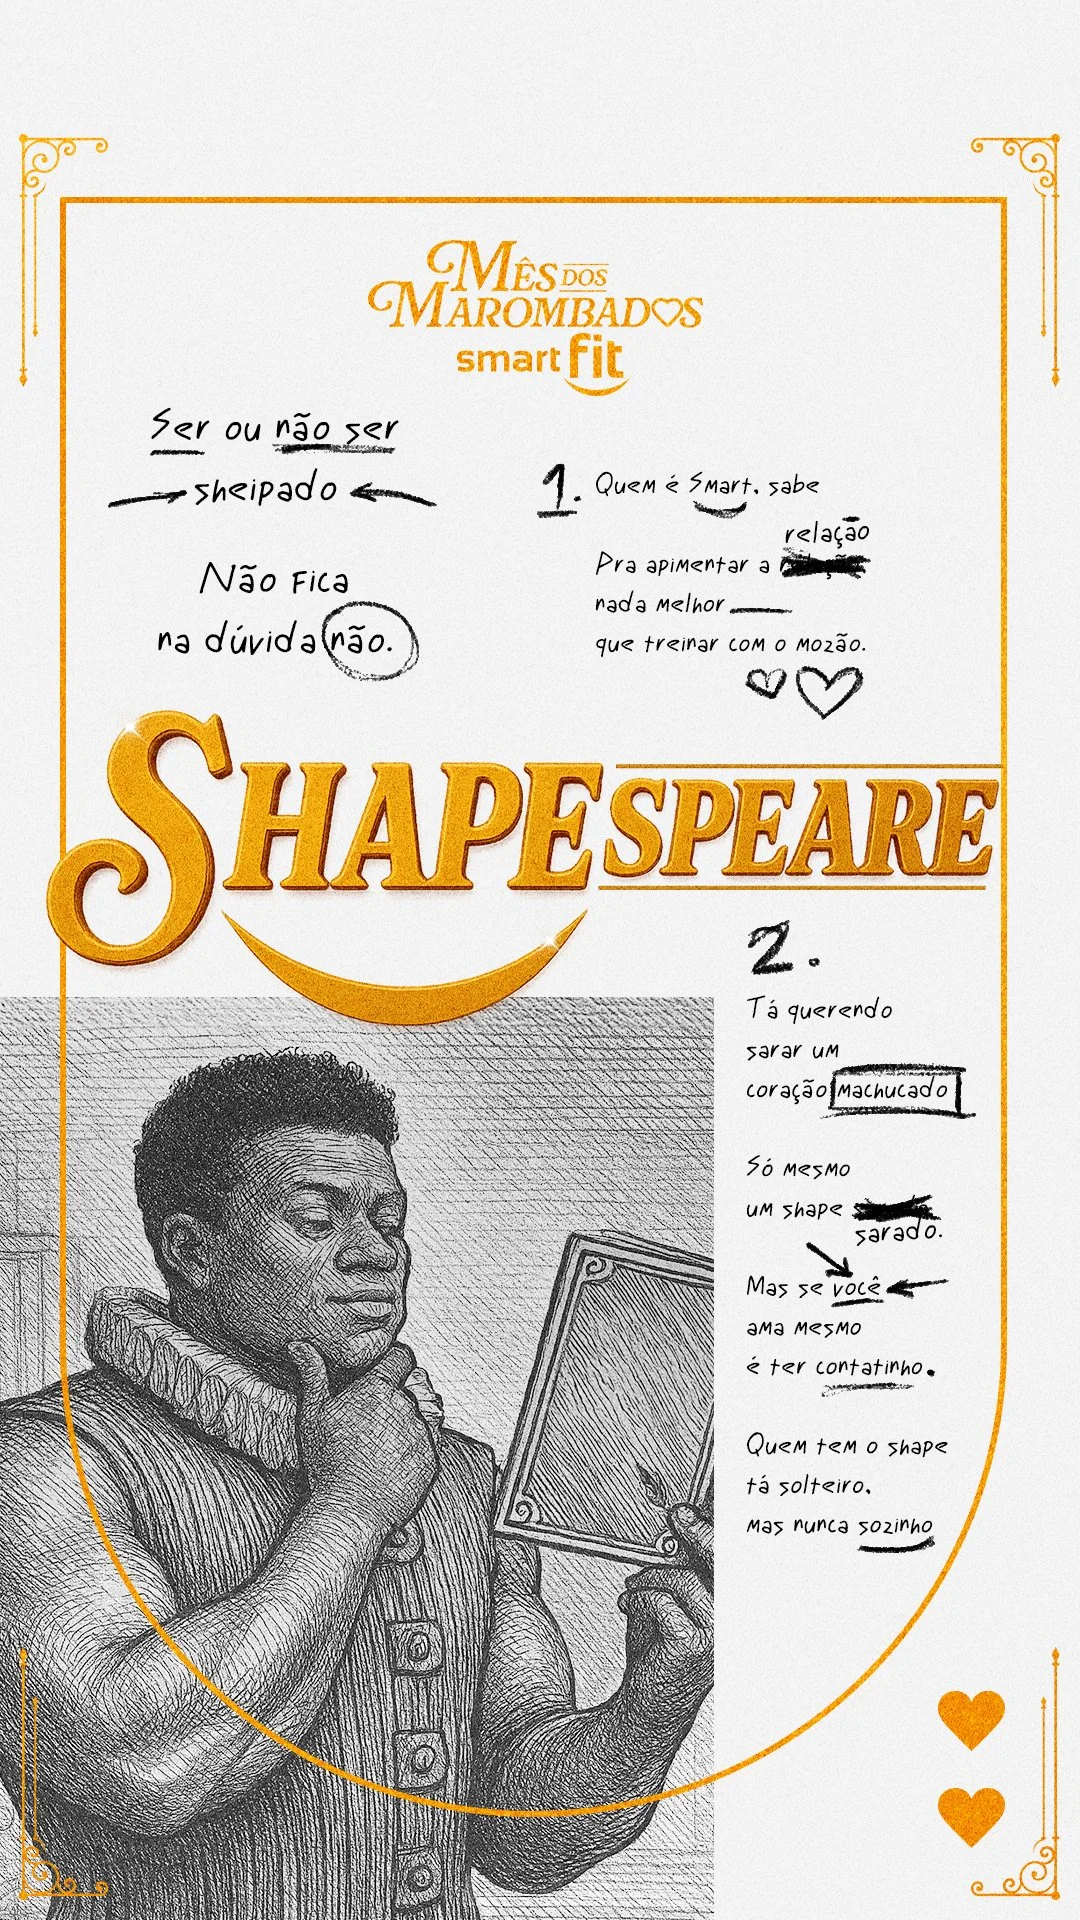 MÊS DOS
MAROMBADOS
smart fit
Ser ou não ser
sheipado
Não fica
na dúvida não.
1. Quem é Smart, sabe
relação
Pra apimentar a
nada melhor
que treinar com o mozão.
SHAPESPEARE
2.
Tá querendo
sarar um
coração machucado
Só mesmo
um shape
sarado.
Mas se você
ama mesmo
é ter contatinho.
Quem tem o shape
tá solteiro,
mas nunca sozinho